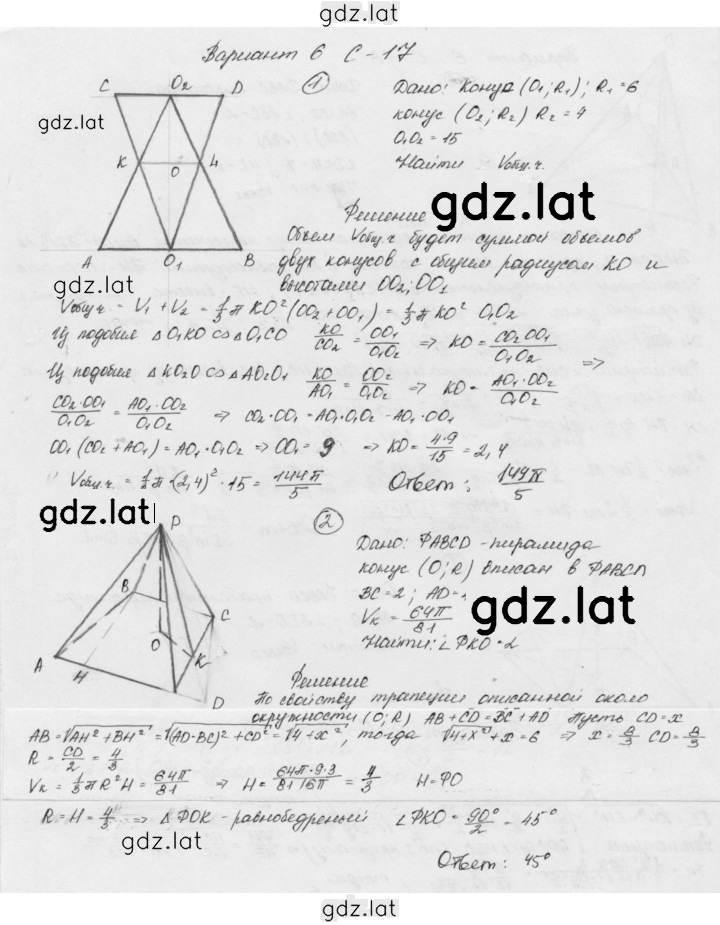 gdz.lat
Вариант 6 С-17
①
C O₂ D
gdz.lat
K O 4
A O₁ B
gdz.lat
Дано: Конус (O₁; R₁); R₁=6
конус (O₂; R₂) R₂=4
O₁O₂=15
Найти Vобщ.ч.
gdz.lat
Решение
Объем Vобщ.ч будет суммой объемов
двух конусов с общим радиусом KO и
высотами OO₂; OO₁
Vобщ.ч = V₁ + V₂ = 1/3 π KO² (OO₂ + OO₁) = 1/3 π KO² O₁O₂
Из подобия △O₁KO ∽ △O₁CO KO/CO₂ = OO₁/O₁O₂ ⇒ KO = CO₂·OO₁/O₁O₂
⇒
Из подобия △KO₂O ∽ △AO₂O₁ KO/AO₁ = OO₂/O₁O₂ ⇒ KO = AO₁·OO₂/O₁O₂
CO₂·OO₁/O₁O₂ = AO₁·OO₂/O₁O₂ ⇒ CO₂·OO₁ = AO₁·O₁O₂ - AO₁·OO₁
OO₁(CO₂ + AO₁) = AO₁·O₁O₂ ⇒ OO₁ = 9 ⇒ KO = 4·9/15 = 2,4
Vобщ.ч. = 1/3 π·(2,4)²·15 = 144π/5 Ответ: 149π/5
gdz.lat
②
P
B
C
O
K
A
H
D
Дано: PABCD - пирамида
конус (O; R) вписан в PABCD
BC = 2; AD =
Vк = 64π/81
gdz.lat
Найти: ∠PKO - 2
Решение
По свойству трапеции описанной около
окружности (O; R) AB + CD = BC + AD Пусть CD = x
AB = √AH² + BH² = √(AD-BC)² + CD² = √4 + x², тогда √4+x² + x = 6 ⇒ x = 8/3 CD = 8/3
R = CD/2 = 4/3
Vк = 1/3 π R² H = 64π/81 ⇒ H = 64π·9·3/81·16π = 4/3 H = PO
R = H = 4/3 ⇒ △POK - равнобедреный ∠PKO = 90°/2 = 45°
gdz.lat
Ответ: 45°
gdz.lat